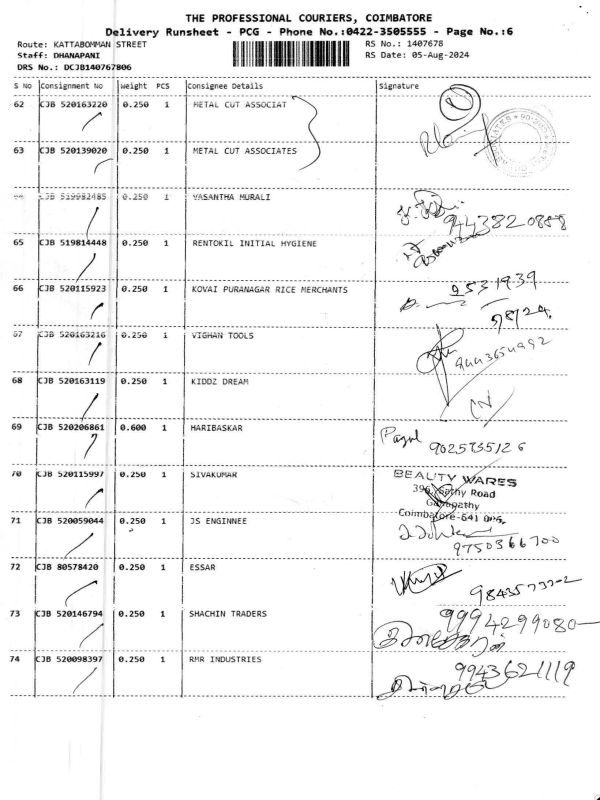 THE PROFESSIONAL COURIERS, COIMBATORE
Delivery Runsheet - PCG - Phone No.:0422-3505555 - Page No.:6
Route: KATTABOMMAN STREET RS No.: 1407678
Staff: DHANAPANI RS Date: 05-Aug-2024
DRS No.: DCJB140767806
S No Consignment No Weight PCS Consignee Details Signature
62 CJB 520163220 0.250 1 METAL CUT ASSOCIAT
63 CJB 520139020 0.250 1 METAL CUT ASSOCIATES
64 CJB 519982485 0.250 1 VASANTHA MURALI
9443820888
65 CJB 519814448 0.250 1 RENTOKIL INITIAL HYGIENE
66 CJB 520115923 0.250 1 KOVAI PURANAGAR RICE MERCHANTS 2531939
5/8/24
67 CJB 520163216 0.250 1 VIGHAN TOOLS
9443654992
68 CJB 520163119 0.250 1 KIDDZ DREAM
69 CJB 520206861 0.600 1 HARIBASKAR
9025735126
70 CJB 520115997 0.250 1 SIVAKUMAR BEAUTY WARES
396, Sathy Road
Ganapathy
Coimbatore-641 006.
71 CJB 520059044 0.250 1 JS ENGINNEE
9750366700
72 CJB 80578420 0.250 1 ESSAR
73 CJB 520146794 0.250 1 SHACHIN TRADERS 9994299080
74 CJB 520098397 0.250 1 RMR INDUSTRIES 9943621119